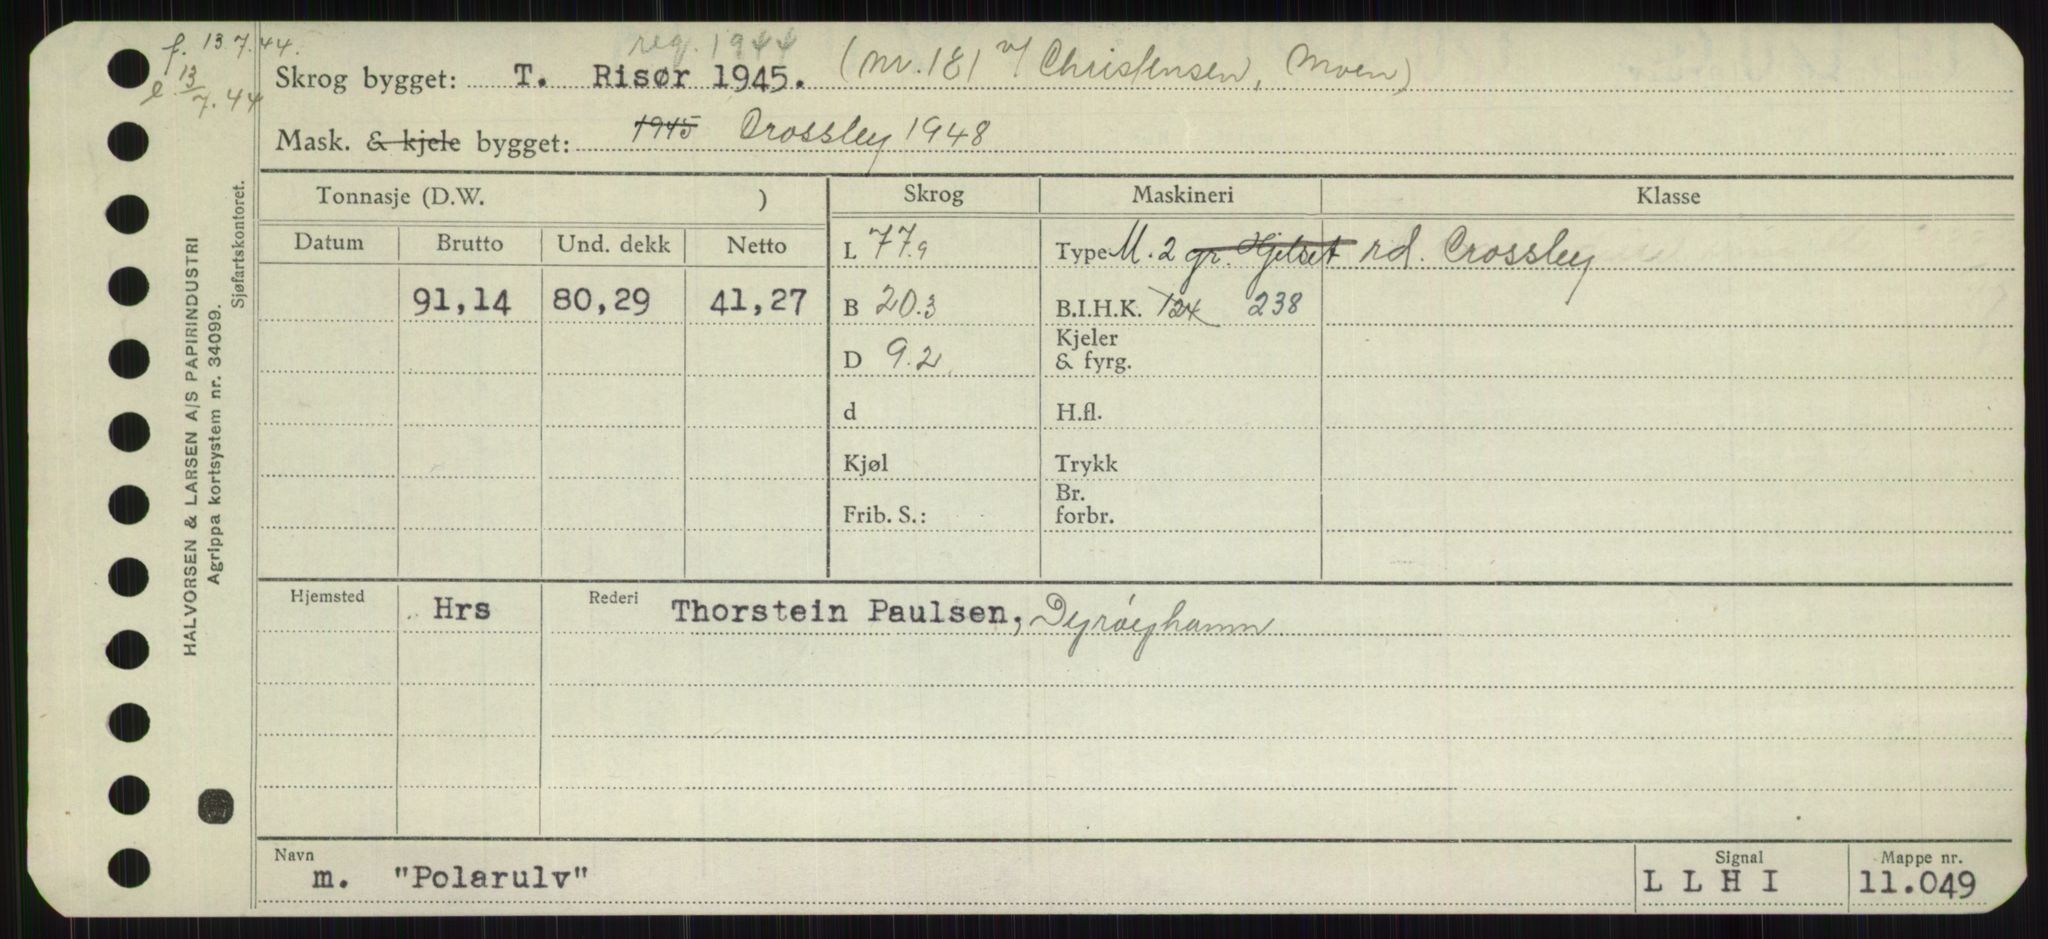 f. 13.7.44.
e. 13/7.44
reg. 1944
Skrog bygget: T. Risør 1945. (nr. 181 v/ Christensen, Moen)
Mask. & kjele bygget: 1945 Crossley 1948
Tonnasje (D.W. ) Skrog Maskineri Klasse
Datum Brutto Und. dekk Netto L 77.9 Type M. 2 gr. Hjelset rd. Crossley
91,14 80,29 41,27 B 20.3 B.I.H.K. 124 238
D 9.2 Kjeler & fyrg.
d H.fl.
Kjøl Trykk
Frib. S.: Br. forbr.
Hjemsted Hrs Rederi Thorstein Paulsen, Dyrøyhamn
Navn Signal Mappe nr.
m. "Polarulv" L L H I 11.049
HALVORSEN & LARSEN A/S PAPIRINDUSTRI
Agrippa kortsystem nr. 34099.
Sjøfartskontoret.